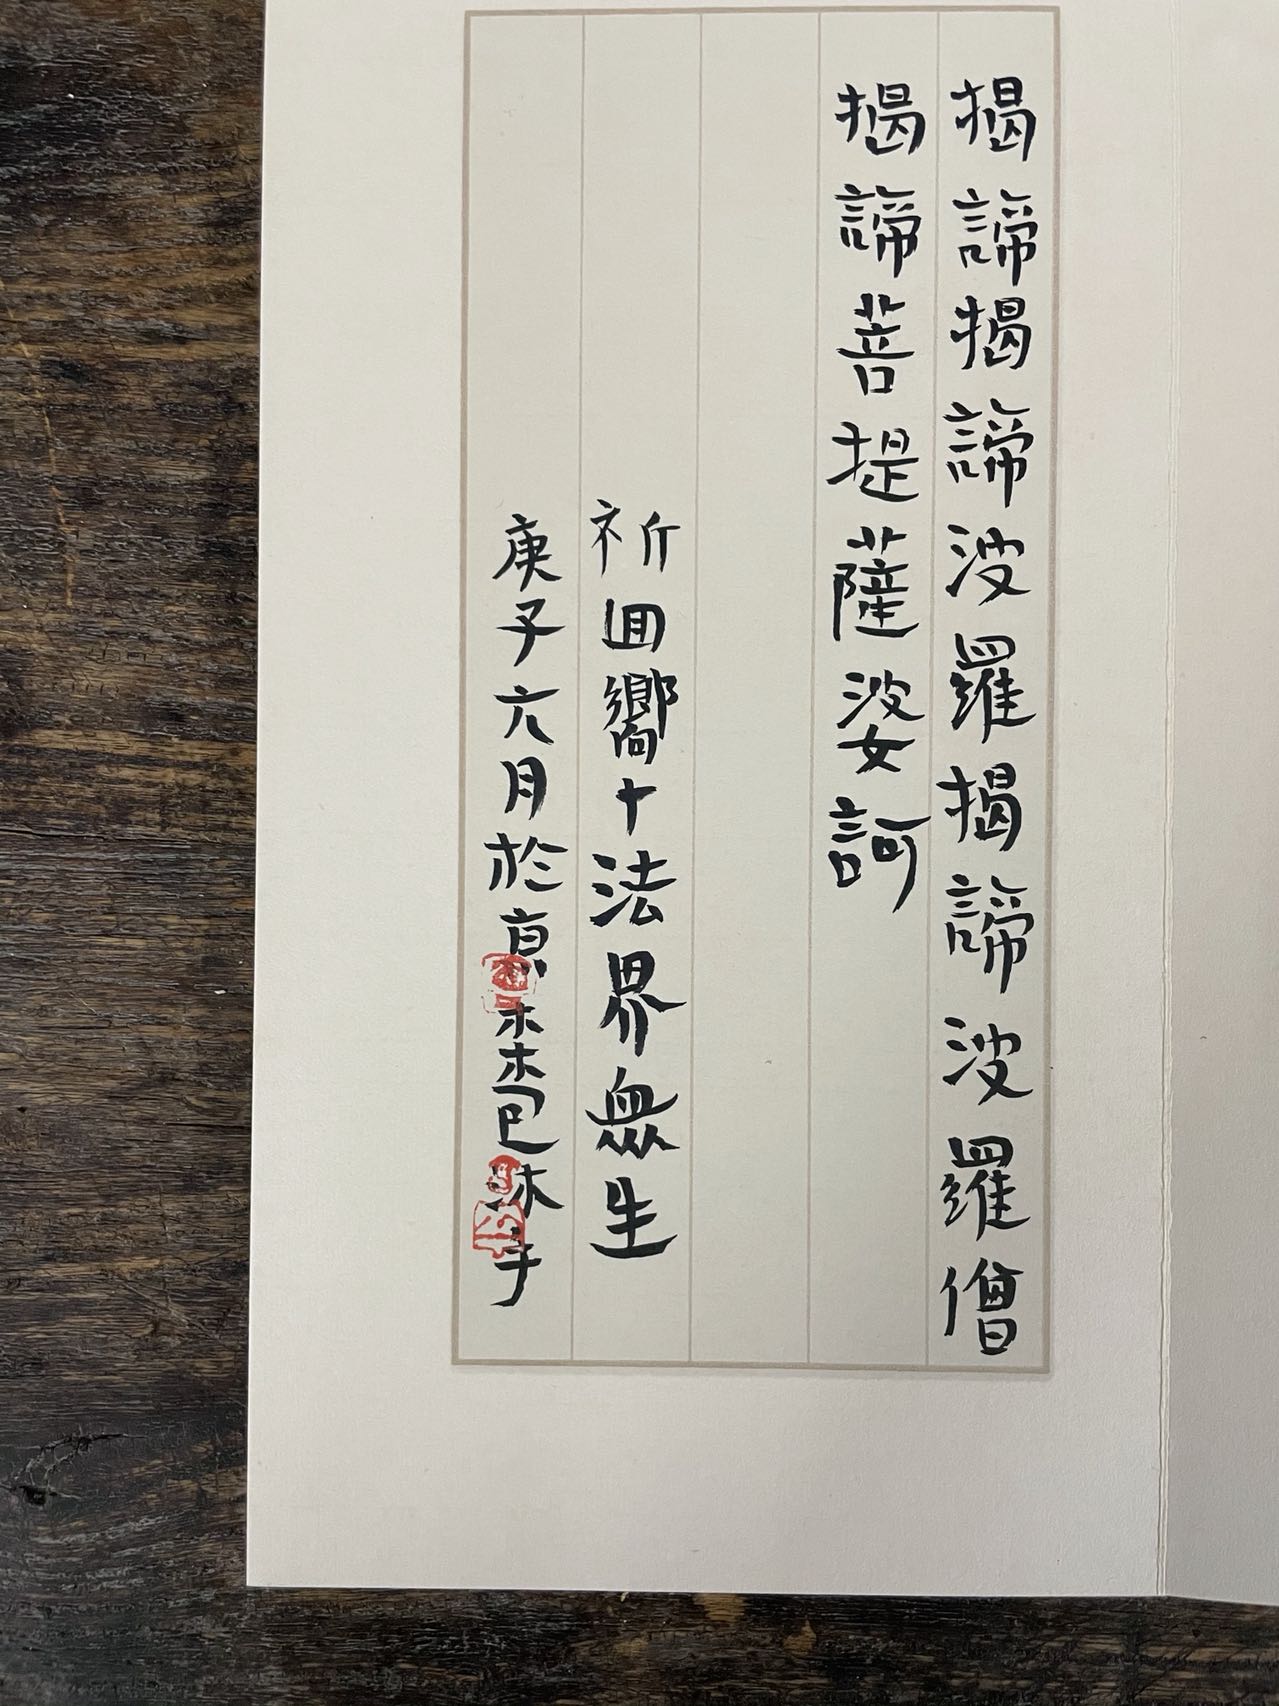 揭諦揭諦波羅揭諦波羅僧
揭諦菩提薩婆訶
祈回嚮十法界眾生
庚子六月於京
沐手